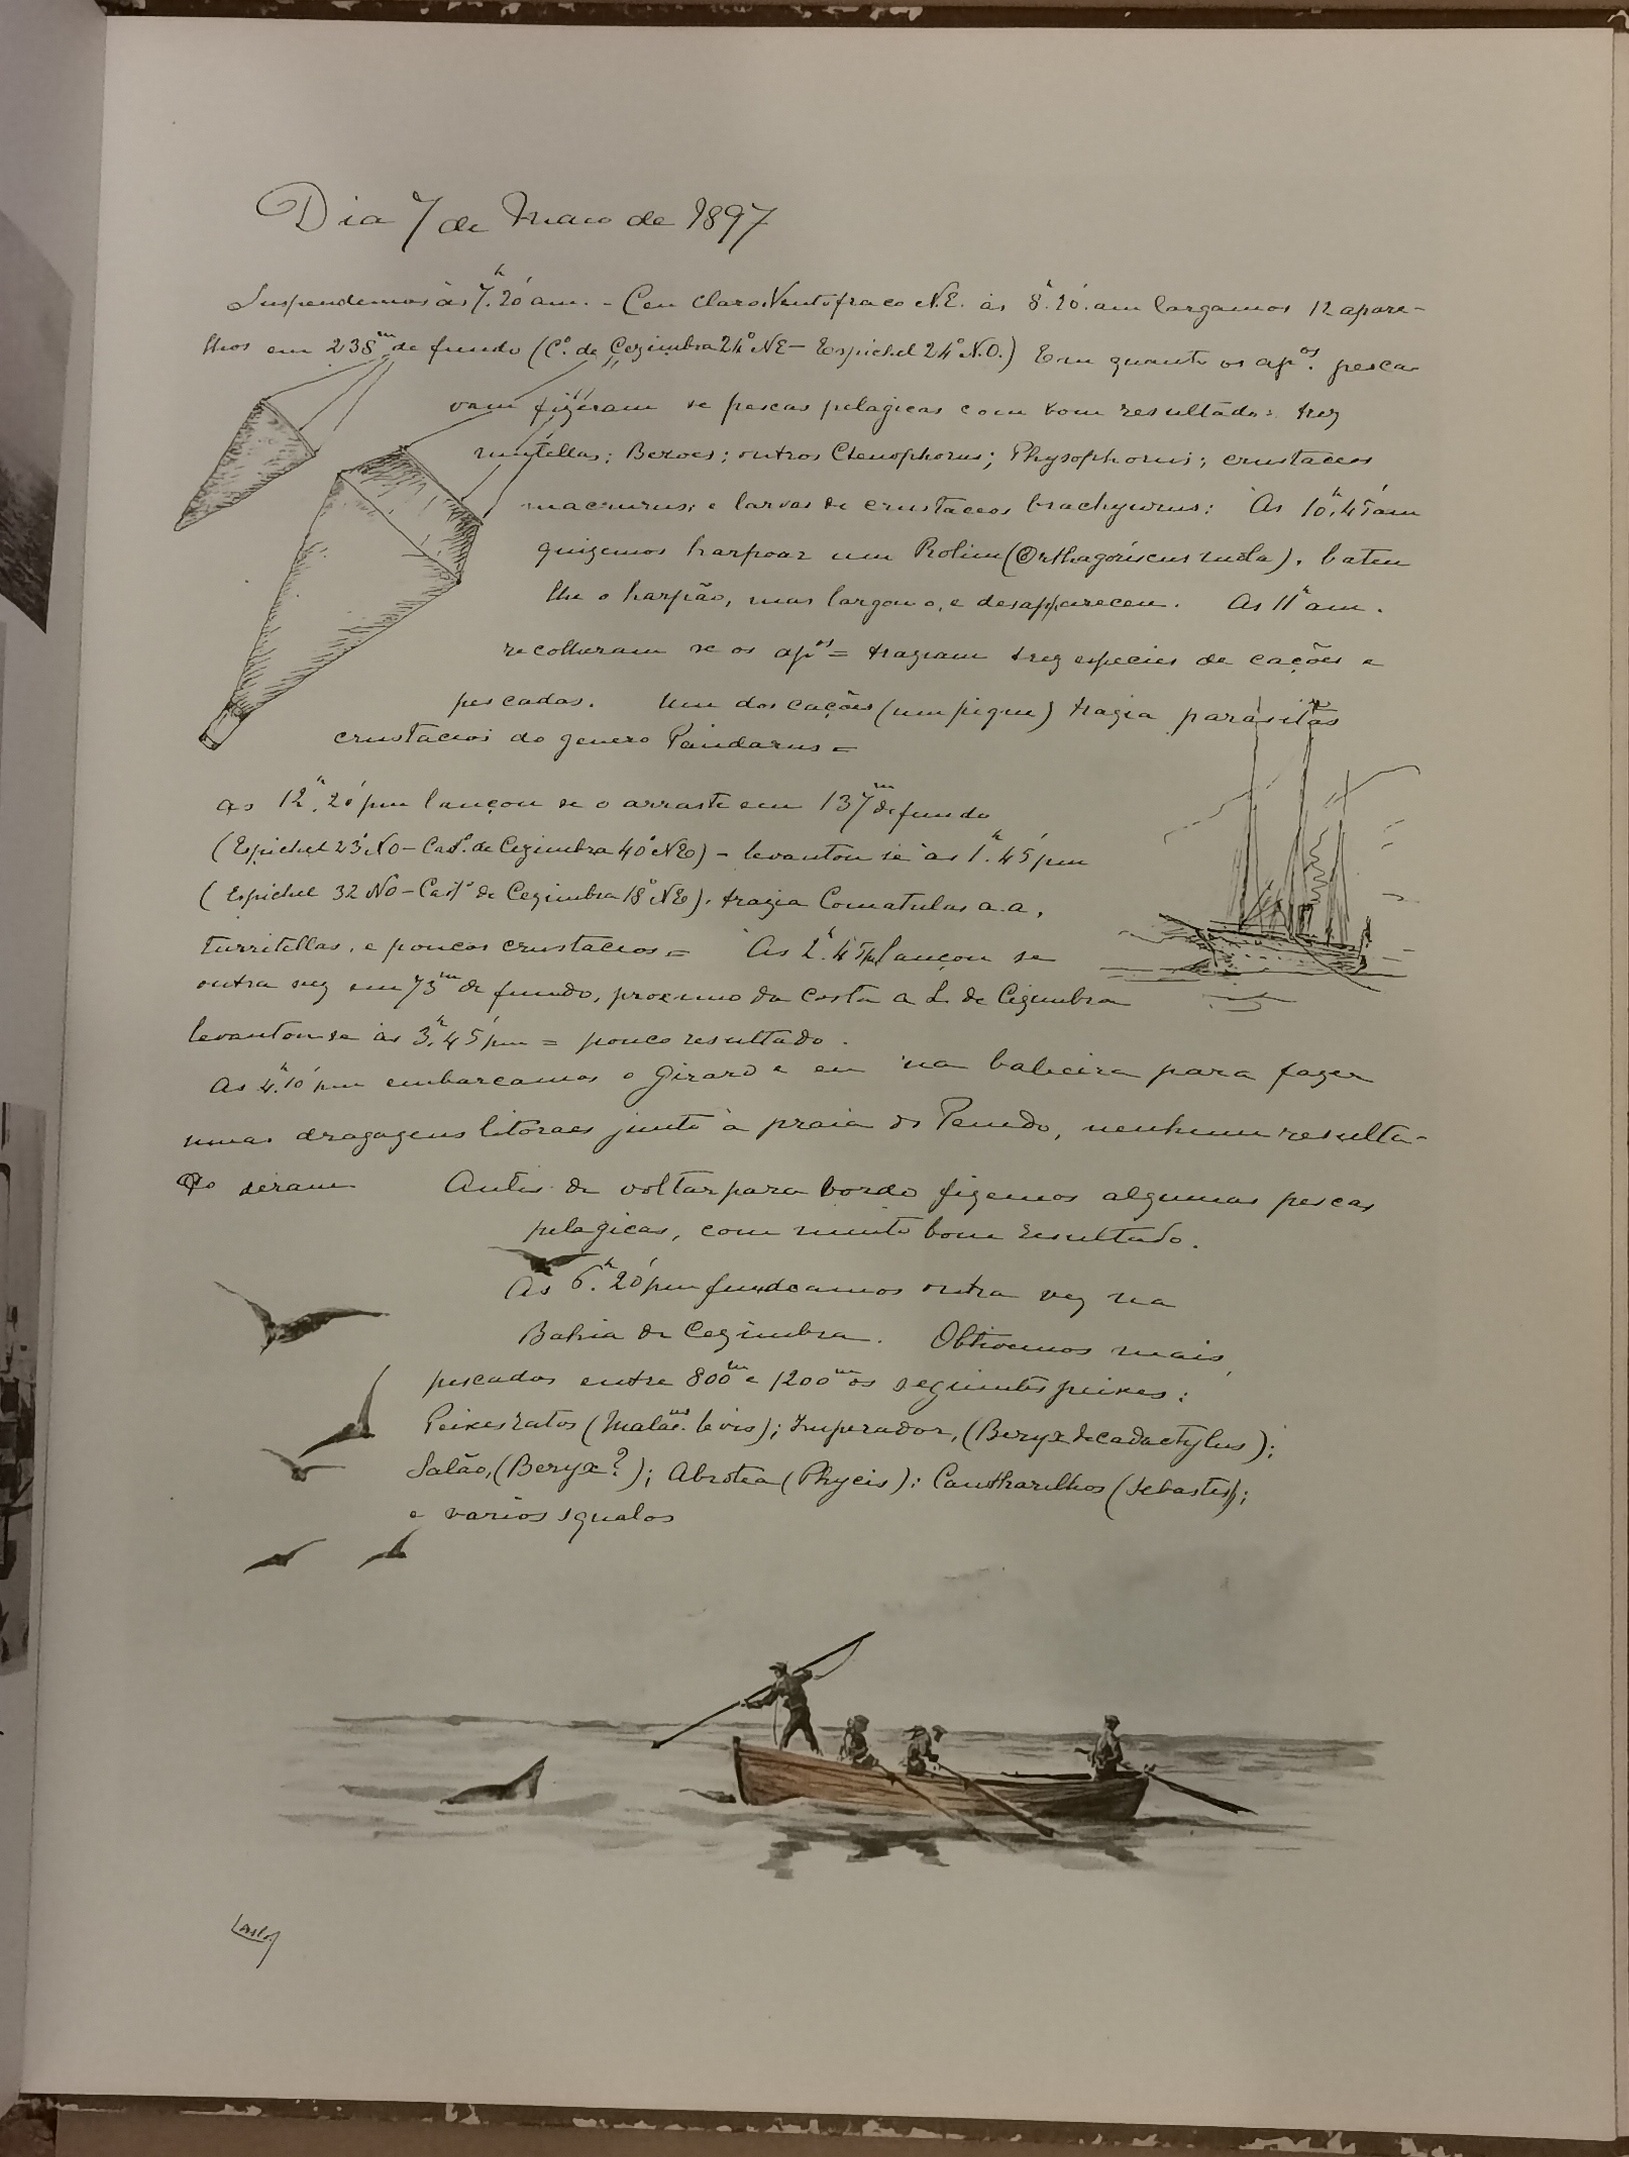 Dia 7 de Maio de 1897
Suspendemos às 7.h 20' am. - Ceu claro. Vento fraco N.E. às 8.h 20'. am largamos 12 apare-
lhos em 238m de fundo (C.º de Cezimbra 24º NE - Espichel 24º N.O.) Em quanto os ap.os pesca-
vam fizeram se pescas pelagicas com bom resultado: trez
; Beroes; outros Ctenophorus; Physophorus; crustaceos
macrurus; e larvas de crustaceos brachyurus: As 10.h 45' am
quizemos harpoar um Rolim (Orthagoriscus mola). bateu
lhe o harpão, mas largou o, e desappareceu. As 11h am.
recolheram se os ap.os = traziam trez especies de cações e
pescadas. Um dos cações (um pique) trazia parasitas
crustaceos do genero Pandarus =
as 12.h 20' pm lançou se o arraste em 137m de fundo
(Espichel 23º NO - Cast.º de Cezimbra 40º NE) - levantou se às 1.h 45' pm
(Espichel 32 NO - Cast.º de Cezimbra 18º NE). trazia Comatulas a.a,
turritellas, e poucos crustaceos = As 2.h 45' pm lançou se
outra vez em 73m de fundo, proximo da costa a L. de Cezimbra
levantou se às 3.h 45' pm = pouco resultado.
As 4.h 10' pm embarcamos o Girard e eu na baleeira para fazer
umas dragagens litoraes junto à praia do Penedo, nenhum resulta-
do deram Antes de voltar para bordo fizemos algumas pescas
pelagicas, com muito bom resultado.
As 6.h 20' pm fundeamos outra vez na
Bahia de Cezimbra. Obtivemos mais,
pescados entre 800m e 1200m os seguintes peixes:
Peixes ratos (Malac.us levis); Imperador, (Beryx decadactylus);
Salão, (Beryx?); Abrotea (Phycis); Cantharilhos (Sebastes);
e varios squalos